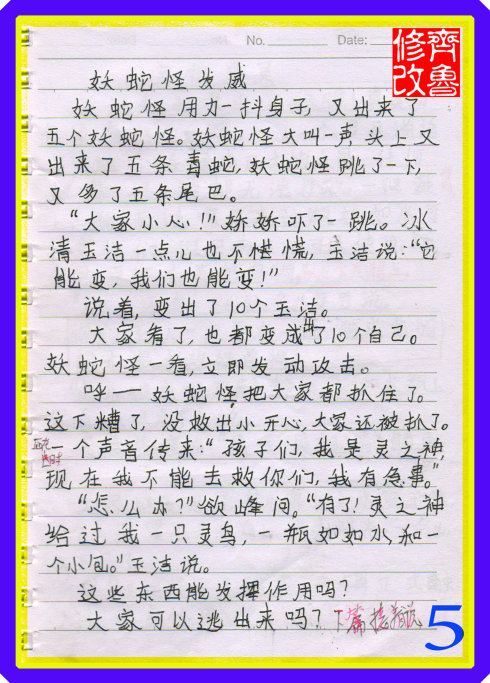 No.
Date:
齐鲁
修改
妖蛇怪发威
妖蛇怪用力一抖身子，又出来了
五个妖蛇怪。妖蛇怪大叫一声，头上又
出来了五条毒蛇，妖蛇怪跳了一下，
又多了五条尾巴。
“大家小心!!!”娇娇吓了一跳。冰
清玉洁一点儿也不慌慌，玉洁说：“它
能变，我们也能变！”
说着，变出了10个玉洁。
大家看了，也都变成出了10个自己。
妖蛇怪一看，立即发动攻击。
呼——妖蛇怪把大家都抓住了。
这下糟了，没救出小开心，大家还被抓了。
一个声音传来：“孩子们，我是灵之神，
现在我不能去救你们，我有急事。”
“怎么办？”欲峰问。“有了！灵之神
给过我一只灵鸟，一瓶如如水和一
个小包。”玉洁说。
这些东西能发挥作用吗？
大家可以逃出来吗？下篇接着说
5